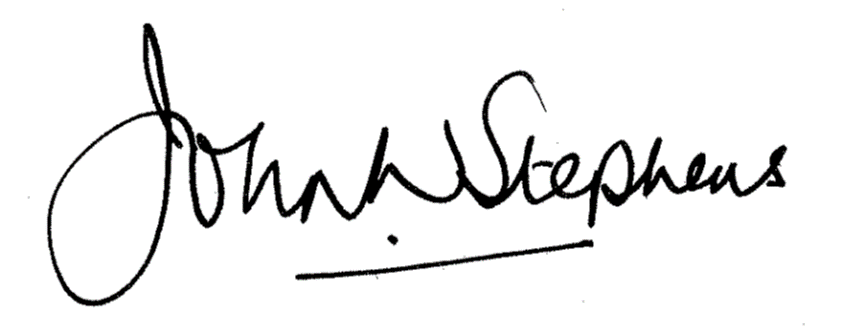 John Stephens